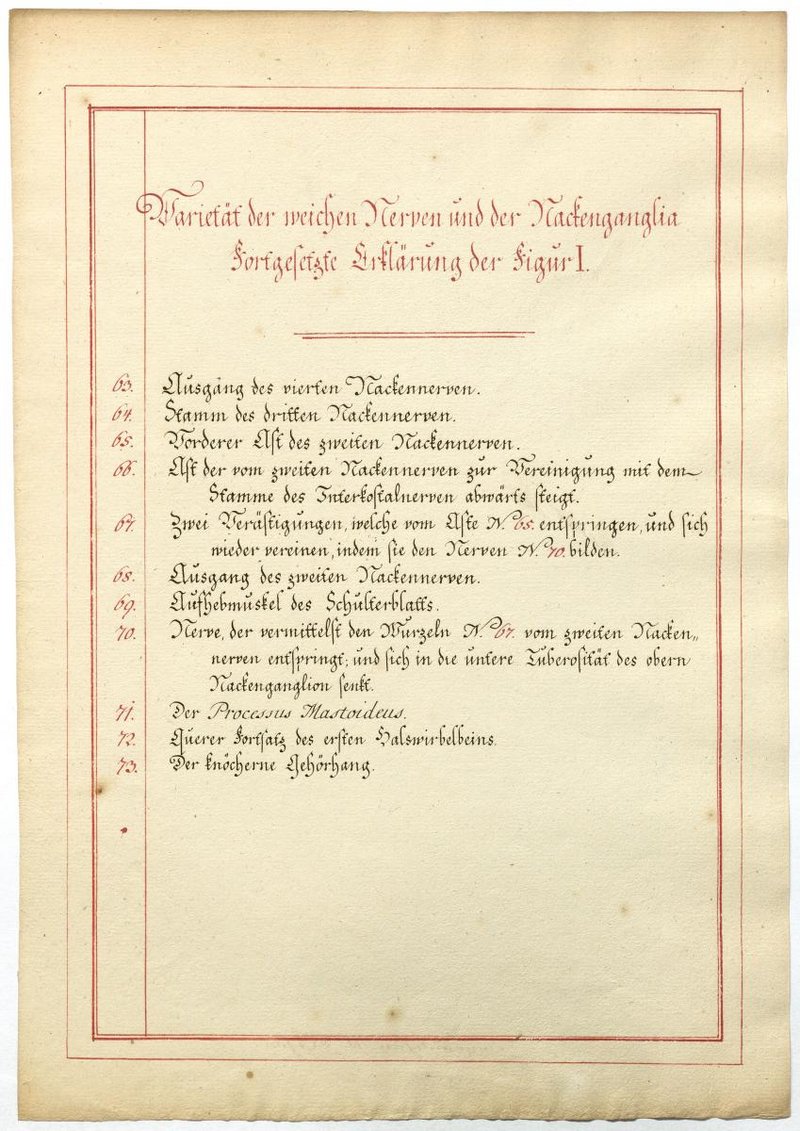 Varietät der weichen Nerven und der Nackenganglia
Fortgesetzte Erklärung der Figur I.
63. Ausgang des vierten Nackennerven.
64. Stamm des dritten Nackennerven.
65. Vorderer Ast des zweiten Nackennerven.
66. Ast der vom zweiten Nackennerven zur Vereinigung mit dem
Stamme des Interkostalnerven abwärts steigt.
67. Zwei Verästigungen, welche vom Aste N.o 65. entspringen, und sich
wieder vereinen, indem sie den Nerven N.o 70. bilden.
68. Ausgang des zweiten Nackennerven.
69. Aufhebmuskel des Schulterblatts.
70. Nerve, der vermittelst den Wurzeln N.o 67. vom zweiten Nacken„
nerven entspringt; und sich in die untere Tuberosität des obern
Nackenganglion senkt.
71. Der Processus Mastoideus.
72. Querer Fortsatz des ersten Halswirbelbeins.
73. Der knöcherne Gehörhang.